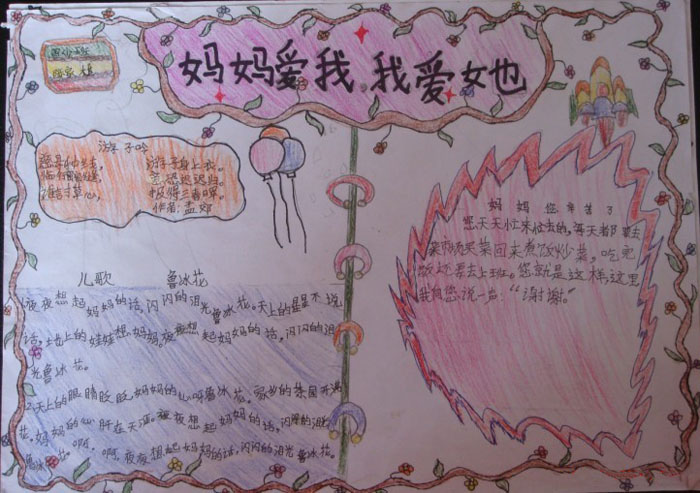 妈妈爱我,我爱她
游子吟
慈母手中线, 游子身上衣。
临行密密缝, 意恐迟迟归。
谁言寸草心, 报得三春晖。
作者:孟郊
儿歌 鲁冰花
夜夜想起妈妈的话,闪闪的泪光鲁冰花。天上的星星不说
话,地上的娃娃想妈妈。夜夜想起妈妈的话,闪闪的泪
光鲁冰花。
天上的眼睛眨眨,妈妈的心呀鲁冰花。家乡的茶园开满
花。妈妈的心肝在天涯。夜夜想起妈妈的话,闪闪的泪光
鲁冰花。啊,啊,夜夜想起妈妈的话,闪闪的泪光鲁冰花。
妈妈您辛苦了
您天天忙来忙去的,每天都要去
菜市场买菜回来煮饭炒菜,吃完
饭还要去上班。您就是这样,这里
我向您说一声:“谢谢。”